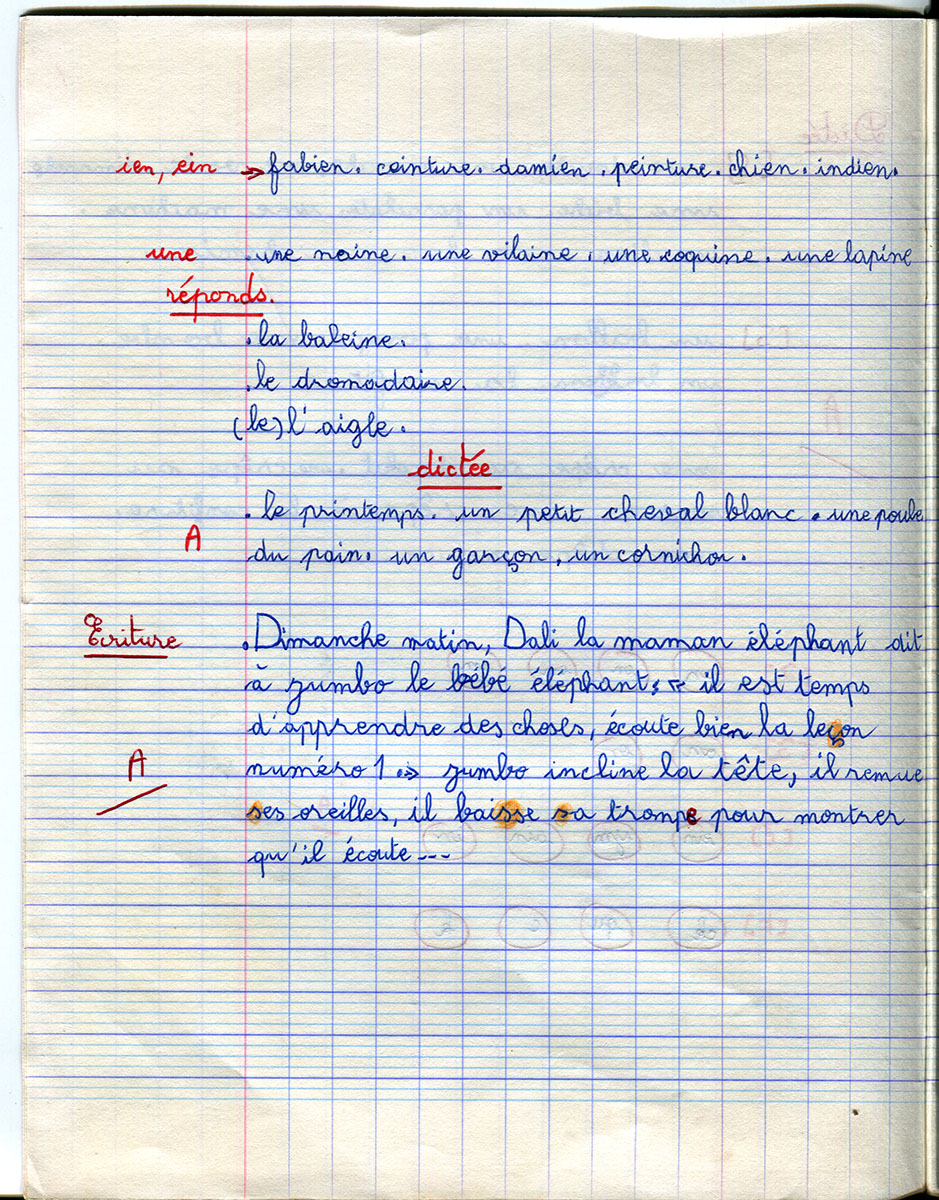 ien, ein => fabien. ceinture. damien. peinture. chien. indien.
une . une naine. une vilaine. une coquine. une lapine
réponds.
. la baleine.
. le dromadaire.
(le) l'aigle.
dictée
. le printemps. un petit cheval blanc. une poule
A du pain. un garçon. un cornichon.
Ecriture . Dimanche matin, Dali la maman éléphant dit
à jumbo le bébé éléphant: - il est temps
d'apprendre des choses, écoute bien la leçon
A numéro 1 => jumbo incline la tête, il remue
ses oreilles, il baisse sa trompe pour montrer
qu'il écoute ---